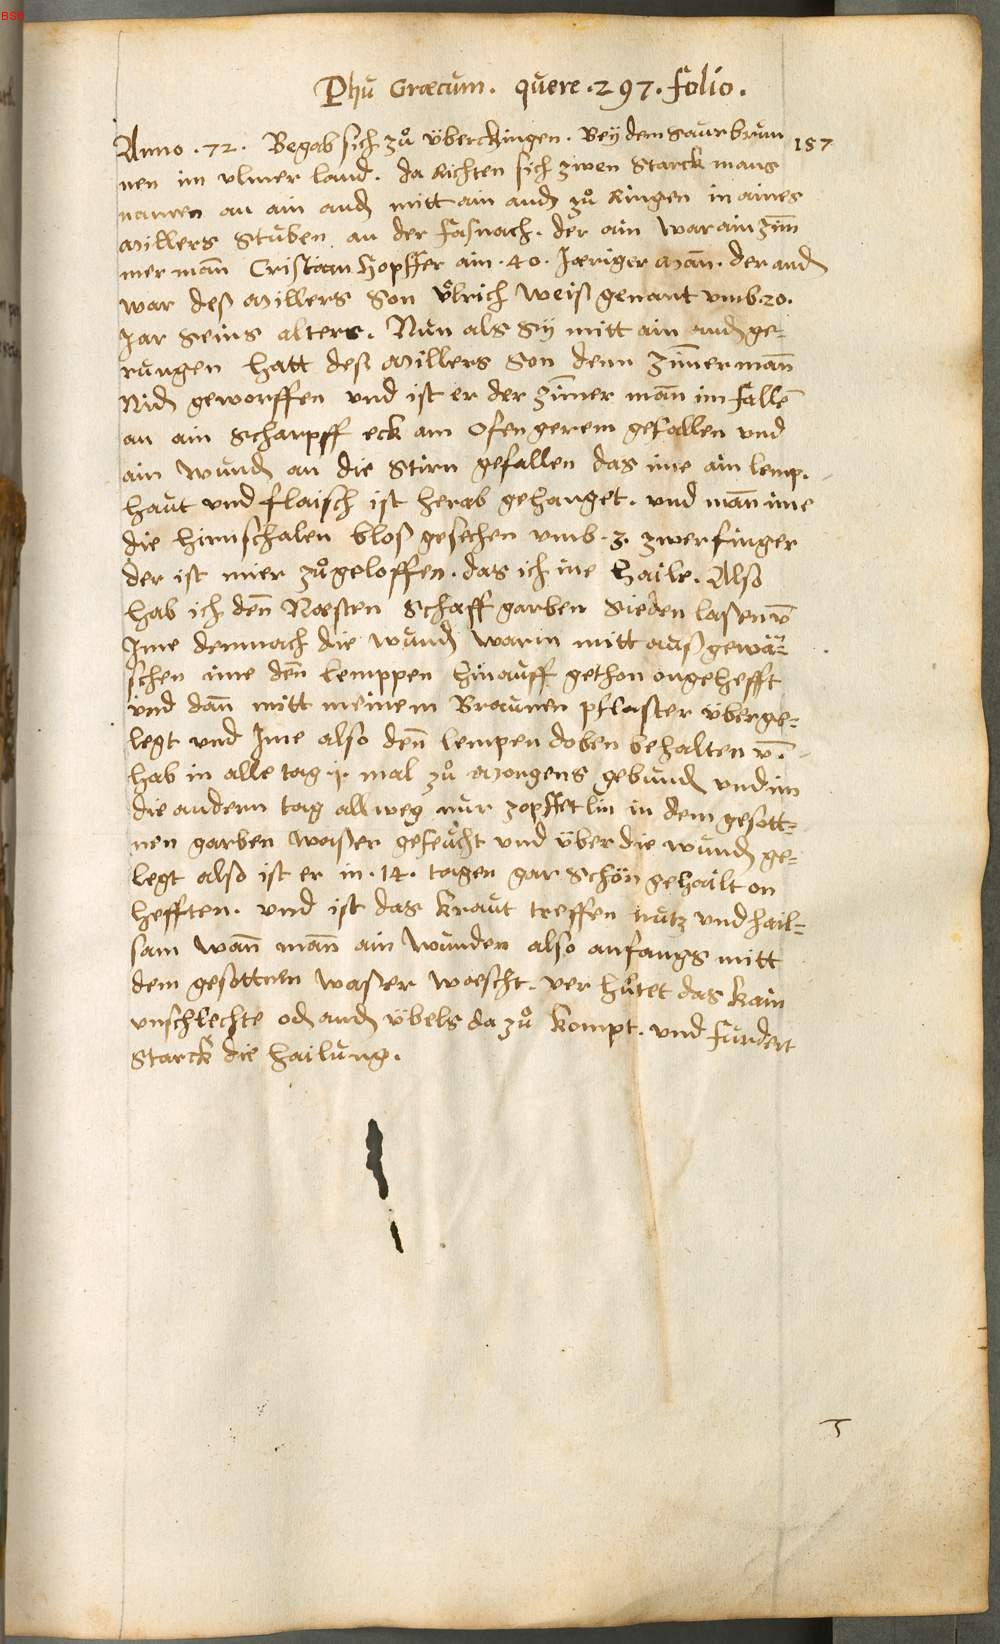 BSB
Phu Græcum. quere .297. folio.
157
Anno .72. Begab sich zuͦ überckingen. Bey dem Saurbrun
nen im ulmer land. da Richten sich zwen Starck mans
namen an ain and mitt ain and zuͦ Ringen in aines
Millers Stuben an der fasnach. der ain war ain zim̄
mer man̄ Cristian Hopffer ain .40. Jæriger Man̄. der and
war deß Millers Son Uͦlrich Weiß genant umb .20.
Jar seins alters. Nun als Sy mitt ain and ge-
rungen hatt deß Millers Son denn Zim̄erman̄
Nid geworffen und ist er der Zim̄er man̄ im fallē
an ain Scharpff eck am Ofen gerem gefallen und
ain wund an die Stirn gefallen das ime ain lemp.
haut und flaisch ist herab gehanget. und man̄ ime
die hirnschalen blos gesechen umb .3. zwerfinger
der ist mier zuͦgeloffen. das ich ine Haile. Also
hab ich den̄ Næsten Schaff garben Sieden laßen v̄
Ime demnach die wund warm mitt auß gewä-
schen ime den̄ lemppen hinauff gethon ongehefft
und dan̄ mitt meinem Braunen pflaster überge-
legt und Ime also den̄ lempen doben behalten v̄.
hab in alle tag .j. mal zuͦ Morgens gebund und im
die andern tag allweg nur zopffetlin in dem gesott-
nen garben waßer gefeucht und über die wund ge-
legt also ist er in .14. tagen gar schön gehailt on
hefften. und ist das kraut treffen nutz und hail-
sam wan̄ man̄ ain wunden also anfangs mitt
dem gesottnen waßer wæscht. ver hütet das kain
unschlechte od and übels da zuͦ kompt. und furdert
Starck die hailung.